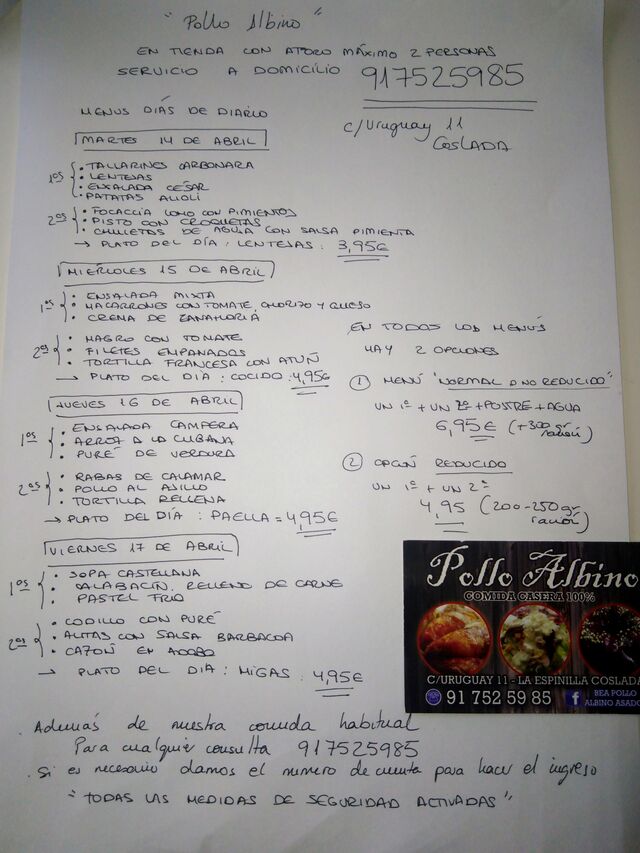 "Pollo Albino"
EN TIENDA CON AFORO MÁXIMO 2 PERSONAS
SERVICIO A DOMICILIO 917525985
C/Uruguay 11
COSLADA
MENUS DÍAS DE DIARIO
MARTES 14 DE ABRIL
1os
• TALLARINES CARBONARA
• LENTEJAS
• ENSALADA CÉSAR
• PATATAS ALIOLI
2os
• FOCACCIA LOMO CON PIMIENTOS
• PISTO CON CROQUETAS
• CHULETAS DE AGUJA CON SALSA PIMIENTA
→ PLATO DEL DÍA: LENTEJAS: 3,95€
MIERCOLES 15 DE ABRIL
1os
• ENSALADA MIXTA
• MACARRONES CON TOMATE, CHORIZO Y QUESO
• CREMA DE ZANAHORIA
2os
• MAGRO CON TOMATE
• FILETES EMPANADOS
• TORTILLA FRANCESA CON ATÚN
→ PLATO DEL DÍA: COCIDO: 4,95€
JUEVES 16 DE ABRIL
1os
• ENSALADA CAMPERA
• ARROZ A LA CUBANA
• PURÉ DE VERDURA
2os
• RABAS DE CALAMAR
• POLLO AL AJILLO
• TORTILLA RELLENA
→ PLATO DEL DÍA: PAELLA = 4,95€
VIERNES 17 DE ABRIL
1os
• SOPA CASTELLANA
• CALABACÍN RELLENO DE CARNE
• PASTEL FRIO
2os
• CODILLO CON PURÉ
• ALITAS CON SALSA BARBACOA
• CAZÓN EN ADOBO
→ PLATO DEL DIA: MIGAS: 4,95€
EN TODOS LOS MENÚS
HAY 2 OPCIONES
① MENÚ "NORMAL O NO REDUCIDO"
UN 1º + UN 2º + POSTRE + AGUA
6,95€ (+300gr ración)
② OPCIÓN REDUCIDO
UN 1º + UN 2º
4,95 (200-250gr ración)
Pollo Albino
COMIDA CASERA 100%
C/URUGUAY 11 - LA ESPINILLA COSLADA
91 752 59 85
BEA POLLO
ALBINO ASADO
. Además de nuestra comida habitual
Para cualquier consulta 917525985
. Si es necesario damos el numero de cuenta para hacer el ingreso
"TODAS LAS MEDIDAS DE SEGURIDAD ACTIVADAS"